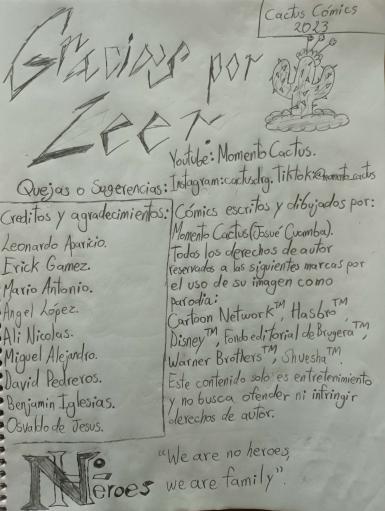 Cactus Cómics
2023
Gracias por
Leer
Youtube: Momento Cactus.
Quejas o Sugerencias: Instagram: cactusdrg. Tiktok: @momento_cactus
Creditos y agradecimientos:
Leonardo Aparicio.
Erick Gamez.
Mario Antonio.
Angel López.
Ali Nicolas.
Miguel Alejandro.
David Pedreros.
Benjamin Iglesias.
Osvaldo de Jesus.
Cómics escritos y dibujados por:
Momento Cactus (Josue Cuamba).
Todos los derechos de autor
reservados a las siguientes marcas por
el uso de su imagen como
parodia:
Cartoon Network™, Hasbro™,
Disney™, Fondo editorial de Brugera™,
Warner Brothers™, Shuesha™,
Este contenido solo es entretenimiento
y no busca ofender ni infringir
derechos de autor.
No-
Héroes
"We are no heroes,
we are family".